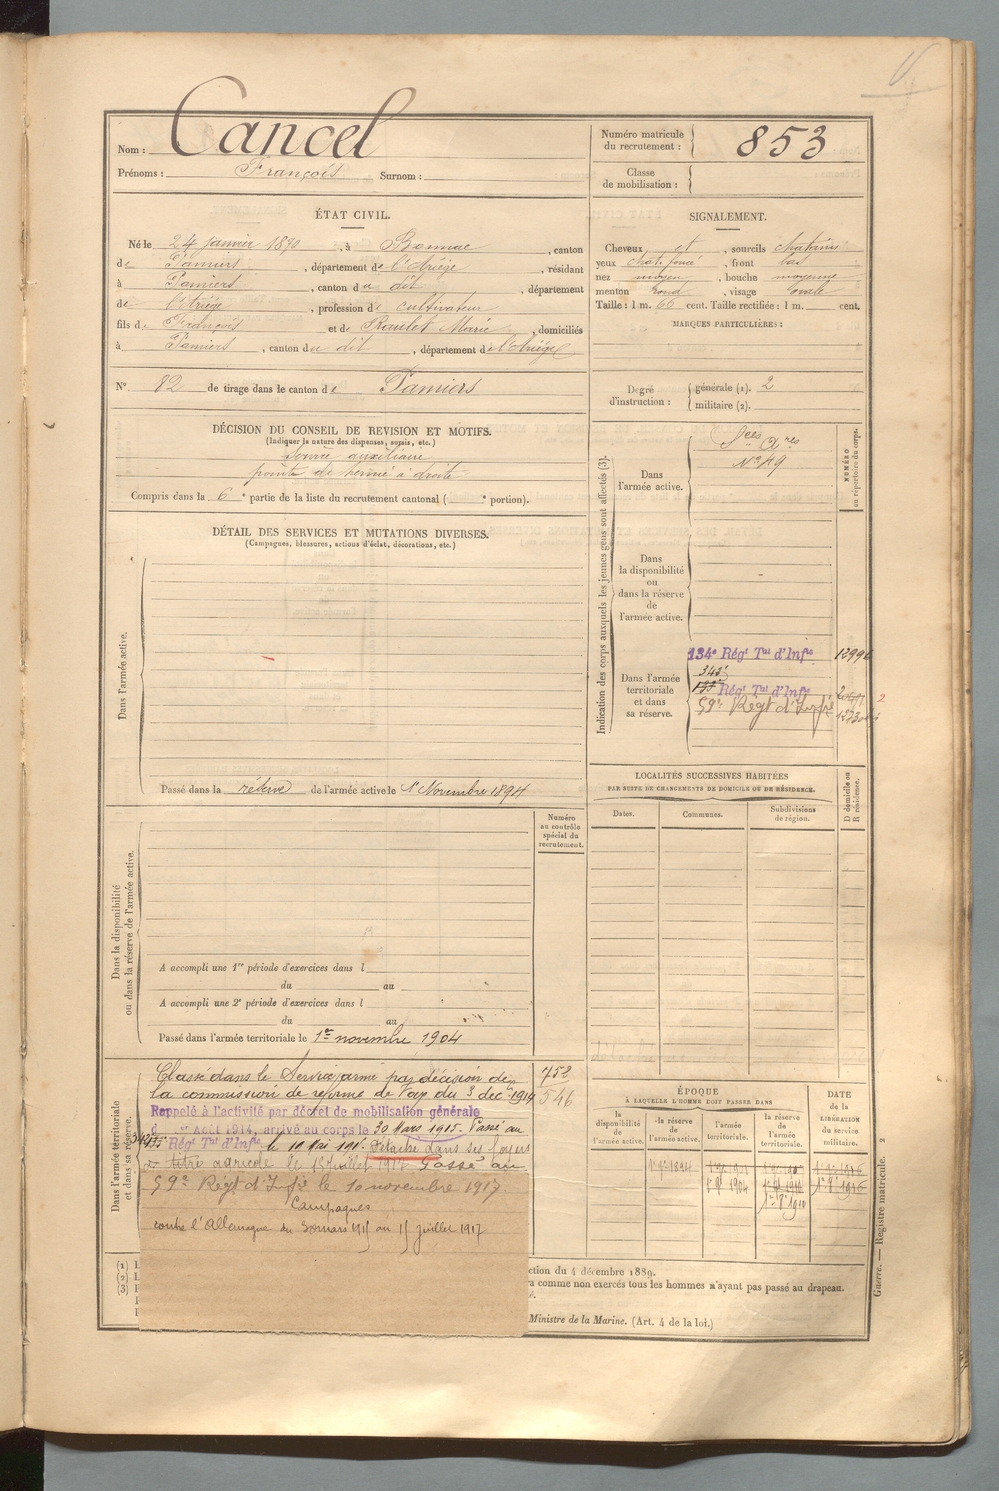 Nom : Cancel
Prénoms : François Surnom :
Numéro matricule du recrutement : 853
Classe de mobilisation :
ÉTAT CIVIL.
Né le 24 janvier 1870, à Bonnac, canton
de Pamiers, département de l'Ariège, résidant
à Pamiers, canton du dit, département
de l'Ariège, profession de cultivateur
fils de François et de Raulet Marie, domiciliés
à Pamiers, canton du dit, département de l'Ariège
N° 82 de tirage dans le canton de Pamiers
SIGNALEMENT.
Cheveux et, sourcils chatains
yeux chat. foncé, front bas
nez moyen, bouche moyenne
menton rond, visage ovale
Taille : 1 m. 66 cent. Taille rectifiée : 1 m. cent.
MARQUES PARTICULIÈRES :
Degré d'instruction : générale (1). 2
militaire (2).
DÉCISION DU CONSEIL DE REVISION ET MOTIFS.
(Indiquer la nature des dispenses, sursis, etc.)
Service auxiliaire
pointe de hernie à droite
Compris dans la 6e partie de la liste du recrutement cantonal ( e portion).
DÉTAIL DES SERVICES ET MUTATIONS DIVERSES.
(Campagnes, blessures, actions d'éclat, décorations, etc.)
Dans l'armée active.
Passé dans la réserve de l'armée active le 1er Novembre 1894
Indication des corps auxquels les jeunes gens sont affectés (3).
NUMÉRO au répertoire du corps.
Dans l'armée active.
Sces Ares
N° 49
Dans la disponibilité ou dans la réserve de l'armée active.
Dans l'armée territoriale et dans sa réserve.
134e Régt Tal d'Infie
343
Régt Tal d'Infie
59e Régt d'Infie
LOCALITÉS SUCCESSIVES HABITÉES
PAR SUITE DE CHANGEMENTS DE DOMICILE OU DE RÉSIDENCE.
Dates. Communes. Subdivisions de région.
D domicile ou R résidence.
Numéro au contrôle spécial du recrutement.
Dans la disponibilité ou dans la réserve de l'armée active.
A accompli une 1re période d'exercices dans l
du au
A accompli une 2e période d'exercices dans l
du au
Passé dans l'armée territoriale le 1er novembre 1904
Dans l'armée territoriale et dans sa réserve.
Classé dans le Service armé par décision de 752
la commission de réforme de Foix du 3 déc. 1914 546
Rappelé à l'activité par décret de mobilisation générale
d Août 1914, arrivé au corps le 30 Mars 1915. Passé au
Régt Tal d'Infie le 10 Mai 191 . Détaché dans ses foyers
titre agricole le 15 juillet 1917 Passé au
59e Régt d'Infie le 10 novembre 1917
Campagnes
contre l'Allemagne du 30 mars 1915 au 15 juillet 1917
ÉPOQUE
À LAQUELLE L'HOMME DOIT PASSER DANS
la disponibilité de l'armée active.
la réserve de l'armée active.
l'armée territoriale.
la réserve de l'armée territoriale.
DATE de la LIBÉRATION du service militaire.
(1) L
(2) L
(3)
ction du 4 décembre 1889.
ra comme non exercés tous les hommes n'ayant pas passé au drapeau.
é.
Ministre de la Marine. (Art. 4 de la loi.)
Guerre. — Registre matricule. 2